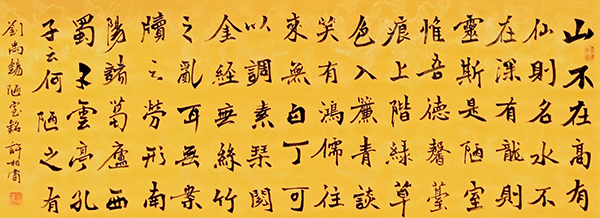 山不在高有
仙則名水不
在深有龍則
靈斯是陋室
惟吾德馨薹
痕上階綠草
色入簾青談
笑有鴻儒往
來無白丁可
以調素琴閱
金經無絲竹
之亂耳無案
牘之勞形南
陽諸葛廬西
蜀子雲亭孔
子云何陋之有
劉禹錫陋室銘許